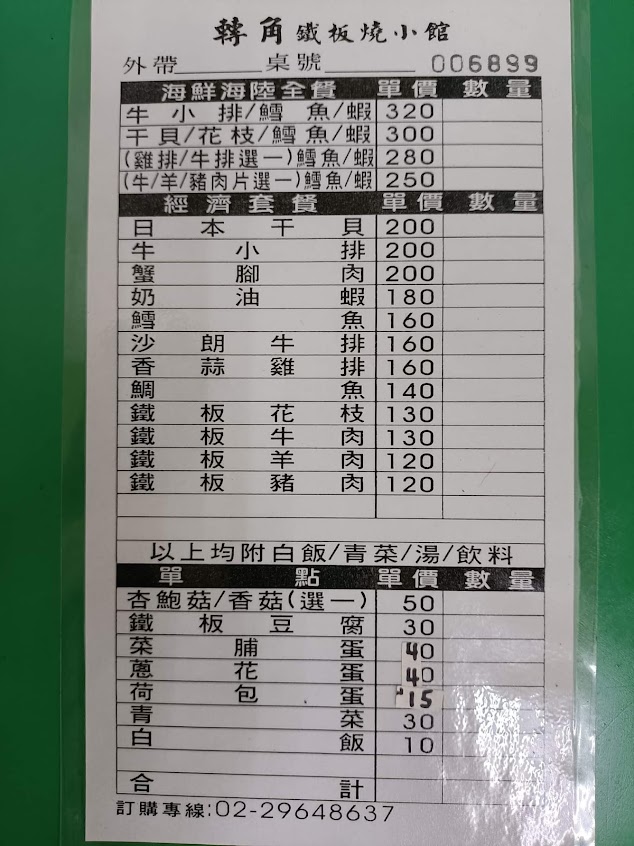 轉角鐵板燒小館
外帶______桌號______ 006899
海鮮海陸全餐 單價 數量
牛小排/鱈魚/蝦 320
干貝/花枝/鱈魚/蝦 300
(雞排/牛排選一)鱈魚/蝦 280
(牛/羊/豬肉片選一)鱈魚/蝦 250
經濟套餐 單價 數量
日本干貝 200
牛小排 200
蟹腳肉 200
奶油蝦 180
鱈魚 160
沙朗牛排 160
香蒜雞排 160
鯛魚 140
鐵板花枝 130
鐵板牛肉 130
鐵板羊肉 120
鐵板豬肉 120
以上均附白飯/青菜/湯/飲料
單點 單價 數量
杏鮑菇/香菇(選一) 50
鐵板豆腐 30
菜脯蛋 40
蔥花蛋 40
荷包蛋 15
青菜 30
白飯 10
合計
訂購專線:02-29648637